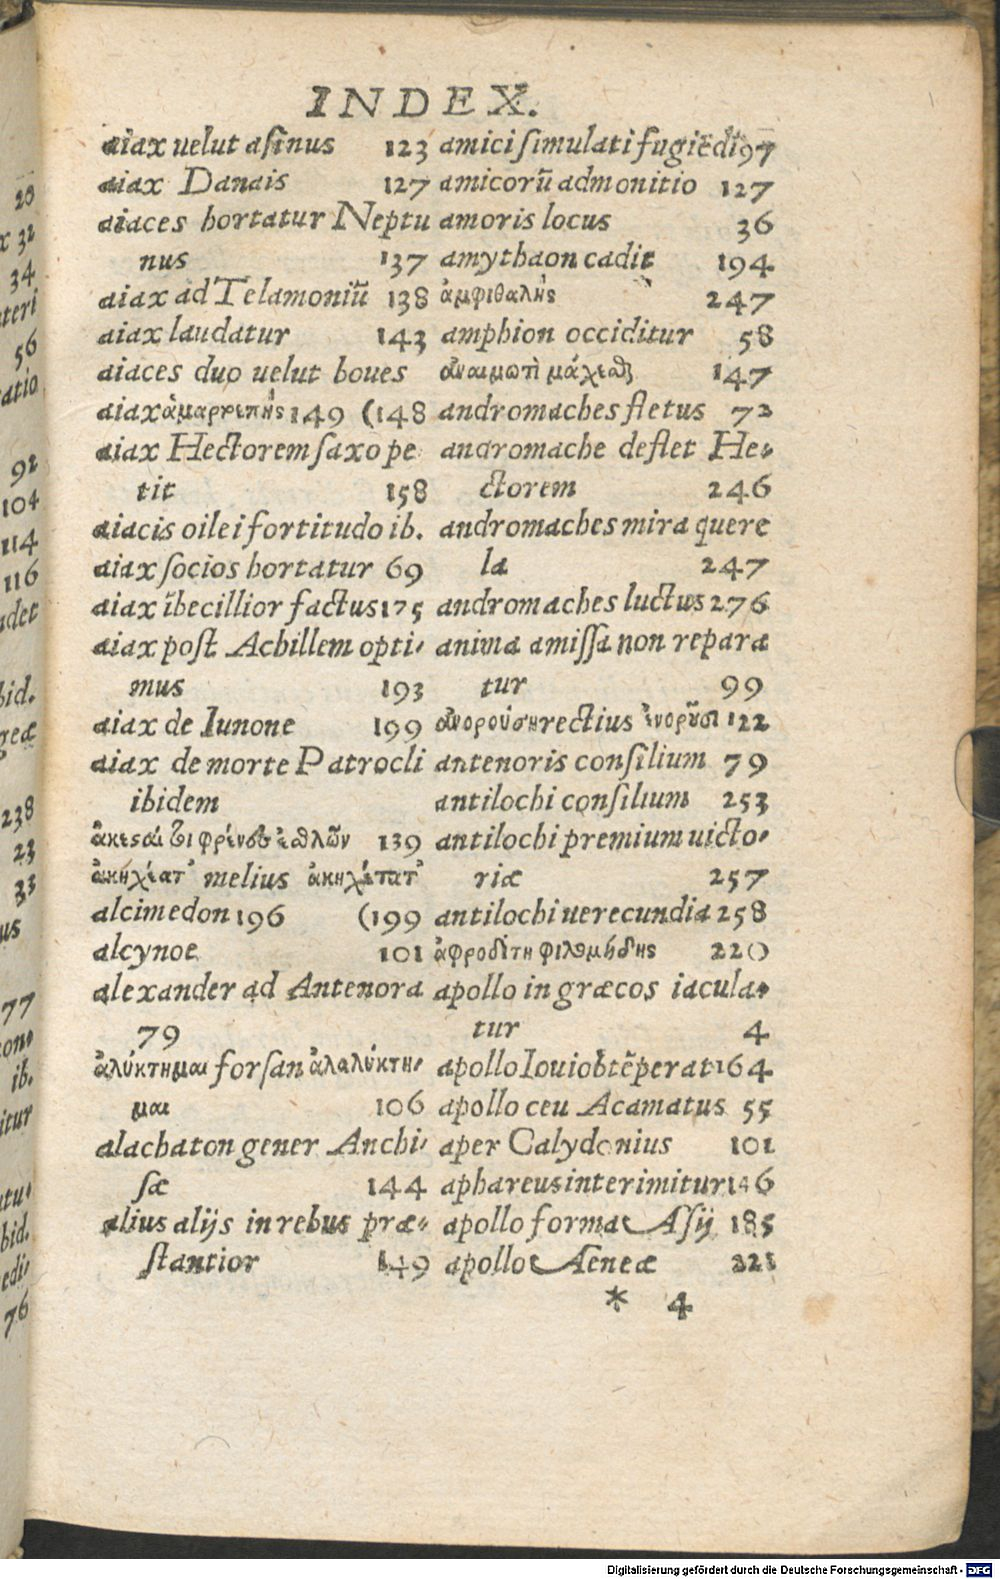 INDEX.
aiax uelut asinus 123
aiax Danais 127
aiaces hortatur Neptu
nus 137
aiax ad Telamoniū 138
aiax laudatur 143
aiaces duo uelut boues
aiax ἀμαρρεπὴς 149 (148
aiax Hectorem saxo pe
tit 158
aiacis oilei fortitudo ib.
aiax socios hortatur 69
aiax ībecillior factus 175
aiax post Achillem opti-
mus 193
aiax de Iunone 199
aiax de morte Patrocli
ibidem
139
melius
alcimedon 196 (199
alcynoe 101
alexander ad Antenora
79
ἀλύκτημαι forsan ἀλαλύκτη-
μαι 106
alachaton gener Anchi-
sæ 144
alius alijs in rebus præ-
stantior 149
amici simulati fugiēdi 97
amicorū admonitio 127
amoris locus 36
amythaon cadit 194
ἀμφιθαλὴς 247
amphion occiditur 58
ἀναιμωτὶ μάχεσθ 147
andromaches fletus 72
andromache deflet He-
ctorem 246
andromaches mira quere
la 247
andromaches luctus 276
anima amissa non repara
tur 99
ἀνορούση rectius 122
antenoris consilium 79
antilochi consilium 253
antilochi premium uicto-
riæ 257
antilochi uerecundia 258
ἀφροδίτη φιλομήδης 220
apollo in græcos iacula-
tur 4
apollo Ioui obtēperat 164
apollo ceu Acamatus 55
aper Calydonius 101
aphareus interimitur 146
apollo forma Asij 185
apollo Aeneæ 221
* 4
20
32
34
56
92
104
114
116
ibid.
238
23
33
77
ib.
76
Digitalisierung gefördert durch die Deutsche Forschungsgemeinschaft - DFG